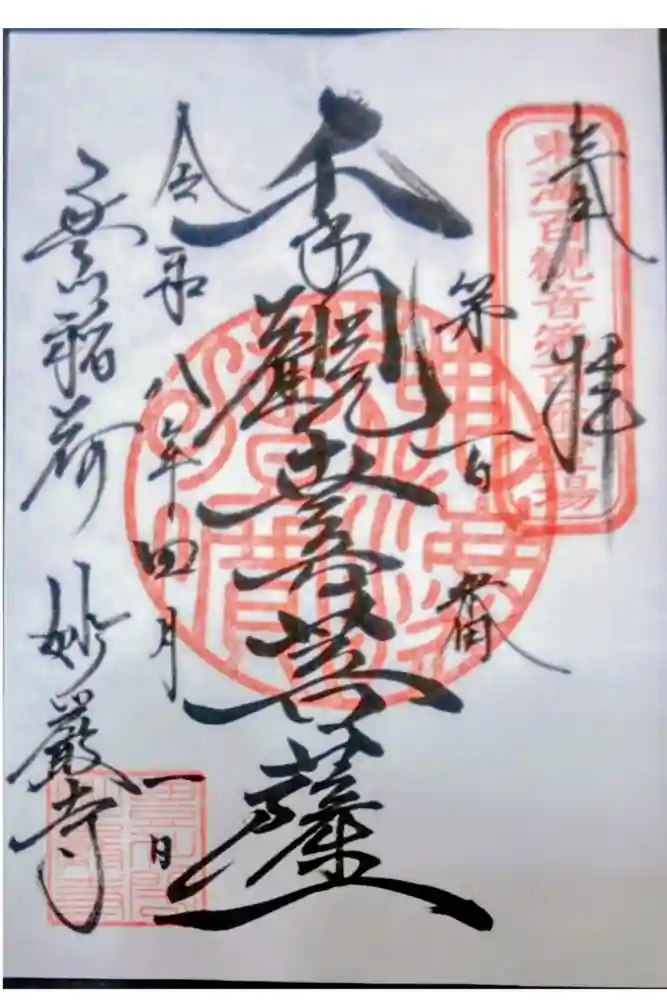 奉拝
東海百観音第百番霊場
第百番
千手觀世音菩薩
令和八年四月一日
豊川稲荷 妙嚴寺